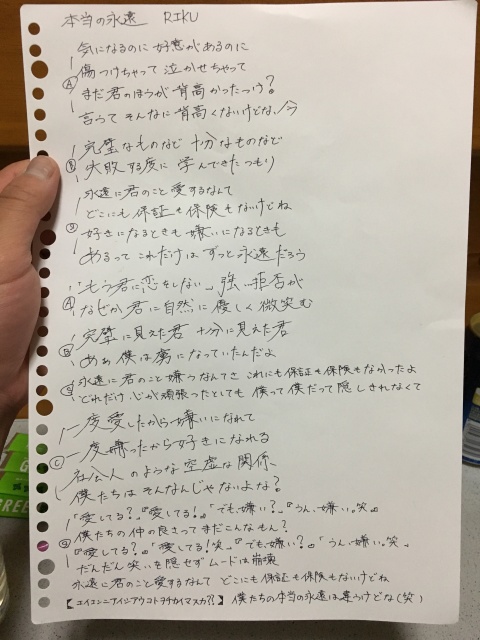 本当の永遠 RIKU
気になるのに 好意があるのに
Ⓐ 傷つけちゃって 泣かせちゃって
まだ君のほうが 背高かったっけ？
言うて そんなに 背高くないけどな、今
完璧なものなど 十分なものなど
Ⓑ 失敗する度に 学んできたつもり
永遠に君のこと 愛するなんて
どこにも 保証も 保険もないけどね
Ⓢ 好きになるときも 嫌いになるときも
あるって これだけは ずっと永遠だろう
「もう君に恋をしない」 強い拒否が
Ⓐ なぜか君に自然に 優しく 微笑む
Ⓑ 完璧に見えた君 十分に見えた君
あぁ 僕は 虜になっていたんだよ
Ⓢ 永遠に 君のこと 嫌うなんてさ これにも保証も保険もなかったよ
どれだけ 心が頑張ったとしても 僕って 僕だって 隠しきれなくて
一度愛したから 嫌いになれて
一度嫌ったから 好きになれる
Ⓒ 社会人のような 空虚な関係
僕たちは そんなんじゃないよな？
「愛してる？」『愛してる！』「でも、嫌い？」『うん、嫌い。笑』
Ⓢ 僕たちの仲の良さって まだこんなもん？
『愛してる？』「愛してる！笑」『でも、嫌い？』「うん、嫌い。笑」
だんだん 笑いを 隠せず ムードは 崩壊
永遠に君のこと愛するなんて どこにも保証も保険もないけどね
【エイエンニアイシアウコトヲチカイマスカ？？】 僕たちの本当の永遠は 違うけどな（笑）
GREE